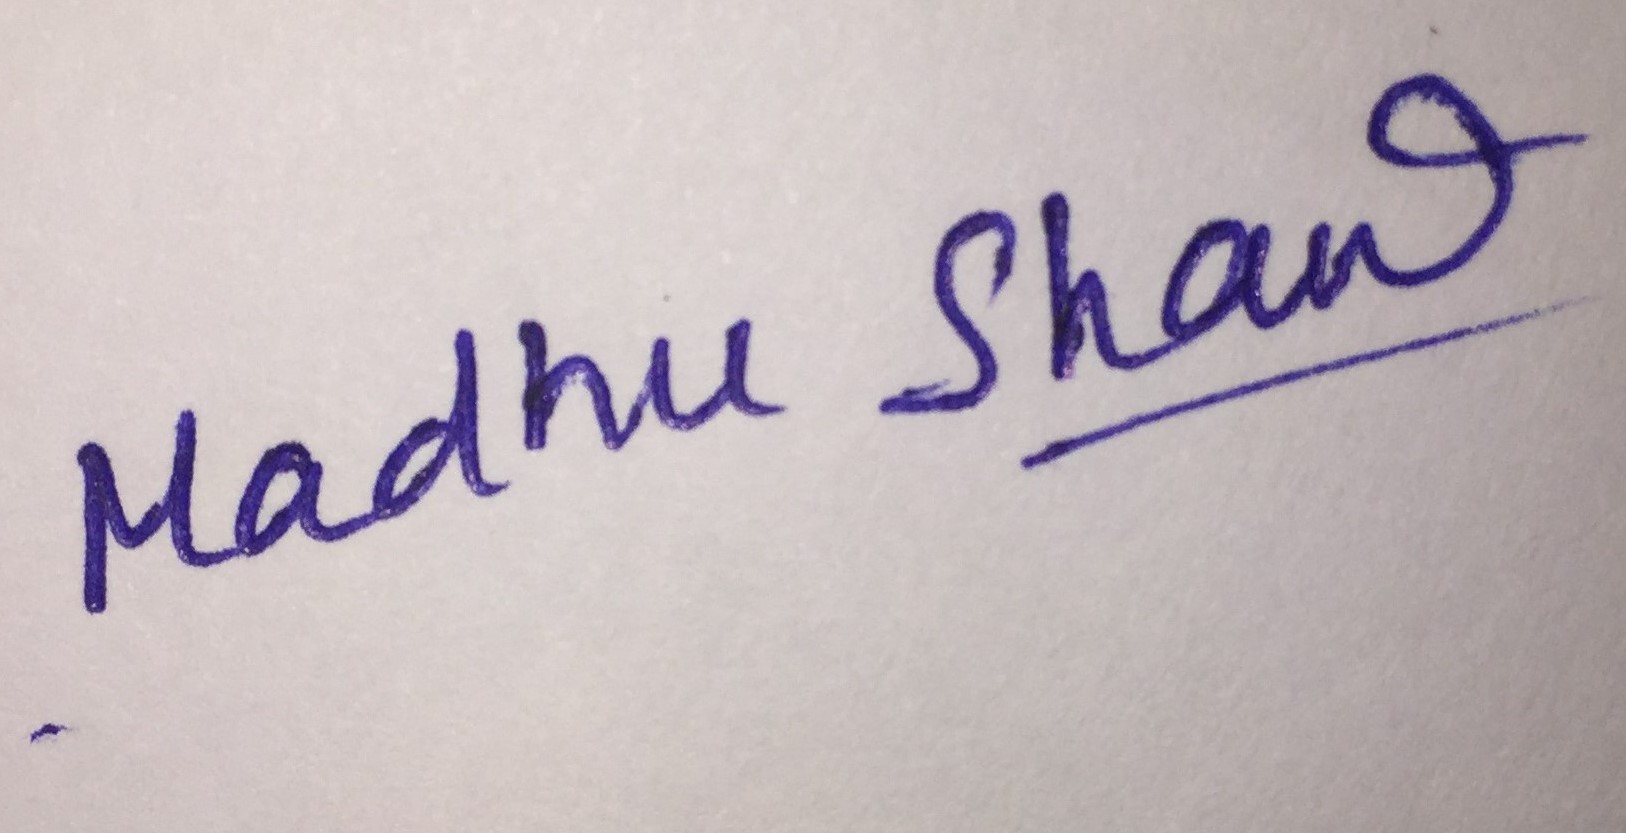 Madhu Shaw